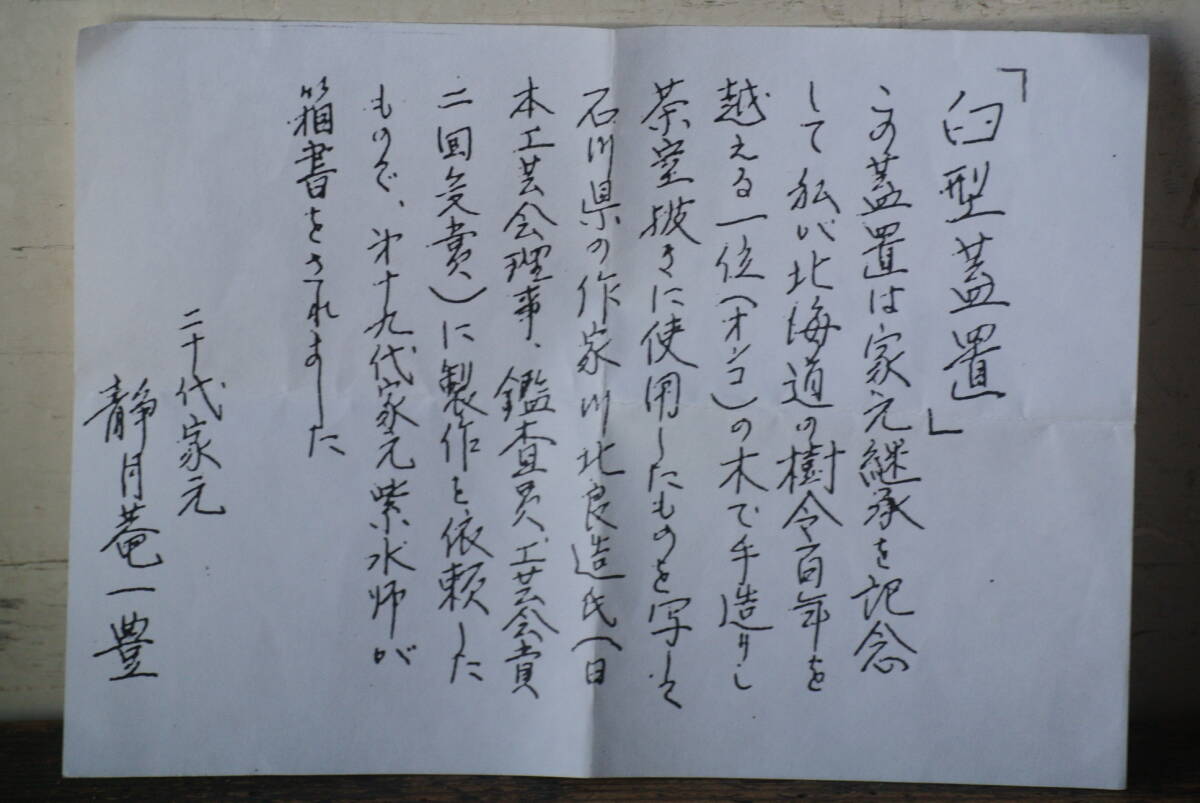 「臼型蓋置」
この蓋置は家元継承を記念
して私が北海道の樹令百年を
越える一位(オンコ)の木で手造りし
茶室披きに使用したものを写して
石川県の作家川北良造氏(日
本工芸会理事、鑑査員、工芸会賞
二回受賞)に製作を依頼した
もので、第十九代家元紫水師が
箱書をされました
二十代家元
静月菴一豊